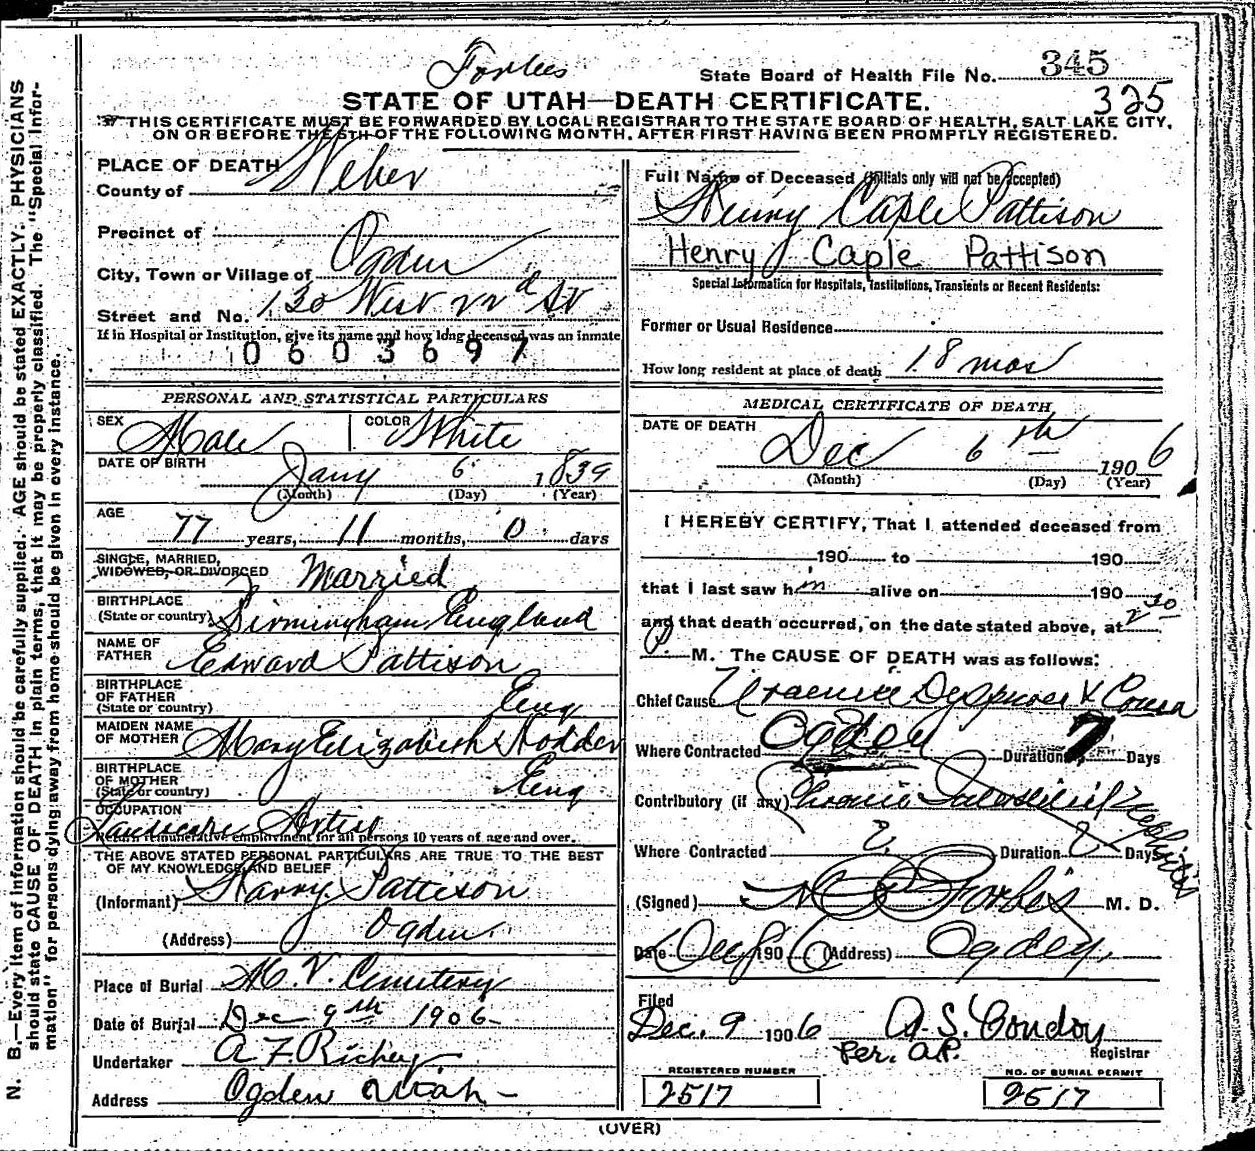 Forbes
State Board of Health File No. 345
325
STATE OF UTAH—DEATH CERTIFICATE.
THIS CERTIFICATE MUST BE FORWARDED BY LOCAL REGISTRAR TO THE STATE BOARD OF HEALTH, SALT LAKE CITY,
ON OR BEFORE THE 5TH OF THE FOLLOWING MONTH, AFTER FIRST HAVING BEEN PROMPTLY REGISTERED.
PLACE OF DEATH
County of Weber
Precinct of
City, Town or Village of Ogden
Street and No. 130 West 22nd St
If in Hospital or Institution, give its name and how long deceased was an inmate
0603697
PERSONAL AND STATISTICAL PARTICULARS
SEX Male COLOR White
DATE OF BIRTH Jany 6 1839
(Month) (Day) (Year)
AGE
77 years, 11 months, 0 days
SINGLE, MARRIED,
WIDOWED, OR DIVORCED Married
BIRTHPLACE
(State or country) Birmingham England
NAME OF
FATHER Edward Pattison
BIRTHPLACE
OF FATHER
(State or country) Eng
MAIDEN NAME
OF MOTHER Mary Elizabeth Hodder
BIRTHPLACE
OF MOTHER
(State or country) Eng
OCCUPATION
Landscape Artist
Return remunerative employment for all persons 10 years of age and over.
THE ABOVE STATED PERSONAL PARTICULARS ARE TRUE TO THE BEST
OF MY KNOWLEDGE AND BELIEF
(Informant) Harry Pattison
(Address) Ogden
Place of Burial M. V. Cemetery
Date of Burial Dec 9th 1906
Undertaker A F Richey
Address Ogden Utah
Full Name of Deceased (Initials only will not be accepted)
Henry Caple Pattison
Henry Caple Pattison
Special Information for Hospitals, Institutions, Transients or Recent Residents:
Former or Usual Residence
How long resident at place of death 18 mos
MEDICAL CERTIFICATE OF DEATH
DATE OF DEATH
Dec 6th 1906
(Month) (Day) (Year)
I HEREBY CERTIFY, That I attended deceased from
190 to 190
that I last saw him alive on 190
and that death occurred, on the date stated above, at 2 30
P. M. The CAUSE OF DEATH was as follows:
Chief Cause Uraemic Dyspnoea & Coma
Where Contracted Ogden Duration 7 Days
Contributory (if any) Chronic Interstitial Nephritis
Where Contracted ? Duration ? Days
(Signed) Forbes M. D.
Date Dec 8 1906 (Address) Ogden,
Filed
Dec. 9 1906 A. S. Condon
Per. A.P. Registrar
REGISTERED NUMBER
2517
NO. OF BURIAL PERMIT
2517
(OVER)
N. B.—Every item of information should be carefully supplied. AGE should be stated EXACTLY. PHYSICIANS
should state CAUSE OF DEATH in plain terms, that it may be properly classified. The "Special Infor-
mation" for persons dying away from home should be given in every instance.